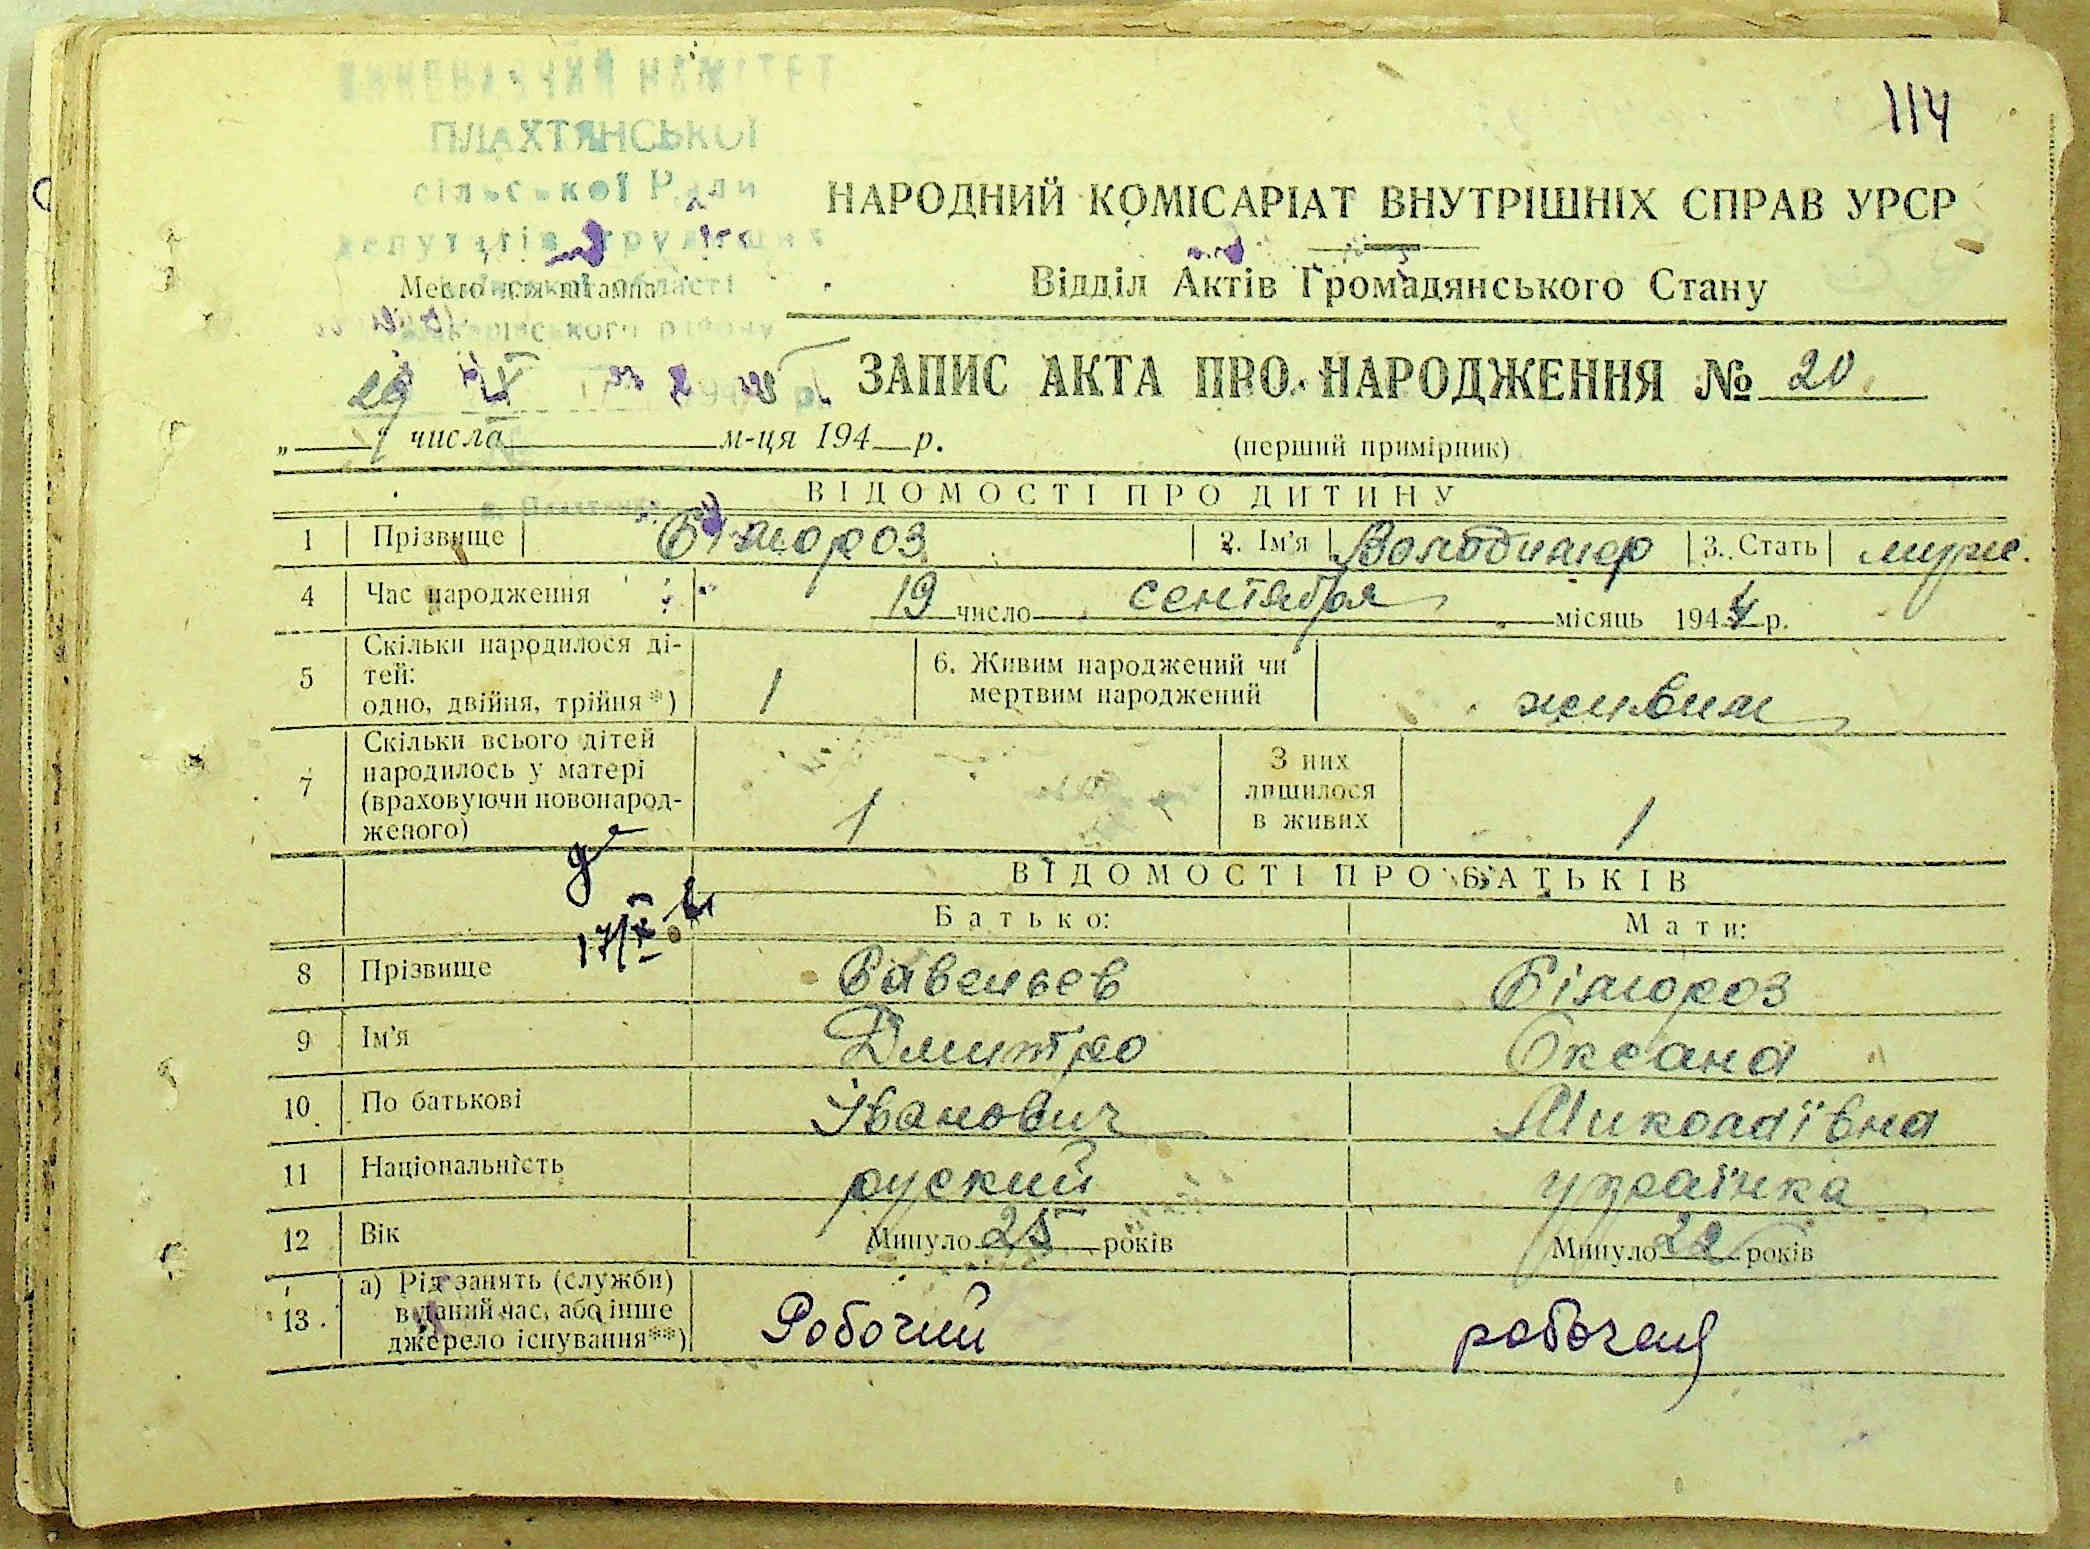 114
ВИКОНАВЧИЙ КОМІТЕТ
ПЛАХТЯНСЬКОЇ
сільської Ради
депутатів трудящих
НАРОДНИЙ КОМІСАРІАТ ВНУТРІШНІХ СПРАВ УРСР
Місце для штампа
Відділ Актів Громадянського Стану
29 IX
ЗАПИС АКТА ПРО НАРОДЖЕННЯ № 20
„ “ числа м-ця 194 р.
(перший примірник)
ВІДОМОСТІ ПРО ДИТИНУ
1 Прізвище Білмороз 2. Ім'я Володимир 3. Стать муж.
4 Час народження 19 число сентября місяць 1944 р.
5 Скільки народилося ді-
тей:
одно, двійня, трійня*) 1
6. Живим народжений чи
мертвим народжений живим
7 Скільки всього дітей
народилось у матері
(враховуючи новонарод-
женого) 1
З них
лишилося
в живих 1
ВІДОМОСТІ ПРО БАТЬКІВ
Батько: Мати:
17/X
8 Прізвище Савельев Білмороз
9 Ім'я Дмитро Оксана
10 По батькові Іванович Миколаївна
11 Національність руский українка
12 Вік Минуло 25 років Минуло 22 років
13 а) Рід занять (служби)
в даний час, або інше
джерело існування**) Робочий робочая